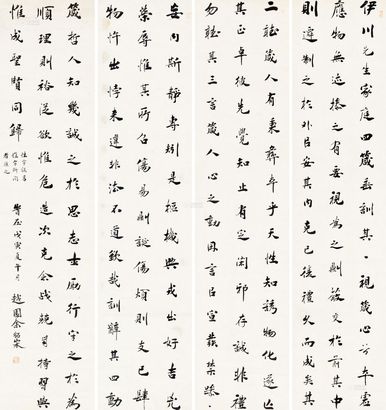 伊川先生家庭四箴垂訓其一心兮本虛
應物無迹操之有要視為之則蔽交於前其中
則遷制之於外以安其內克己復禮久而成矣其
二聽箴人有秉彝本乎天性知誘物化遂亡
其正卓彼先覺知止有定閑邪存誠非禮
勿聽其三言箴人心之動因言以宣發禁躁
妄內斯靜專矧是樞機興戎出好吉凶
榮辱惟其所召傷易則誕傷煩則支己肆
物忤出悖來違非法不道欽哉訓辭其四動
箴哲人知幾誠之於思志士勵行守之於為
順理則裕從欲惟危造次克念戰兢自持習與
惟成聖賢同歸
性字誤書
戊寅夏